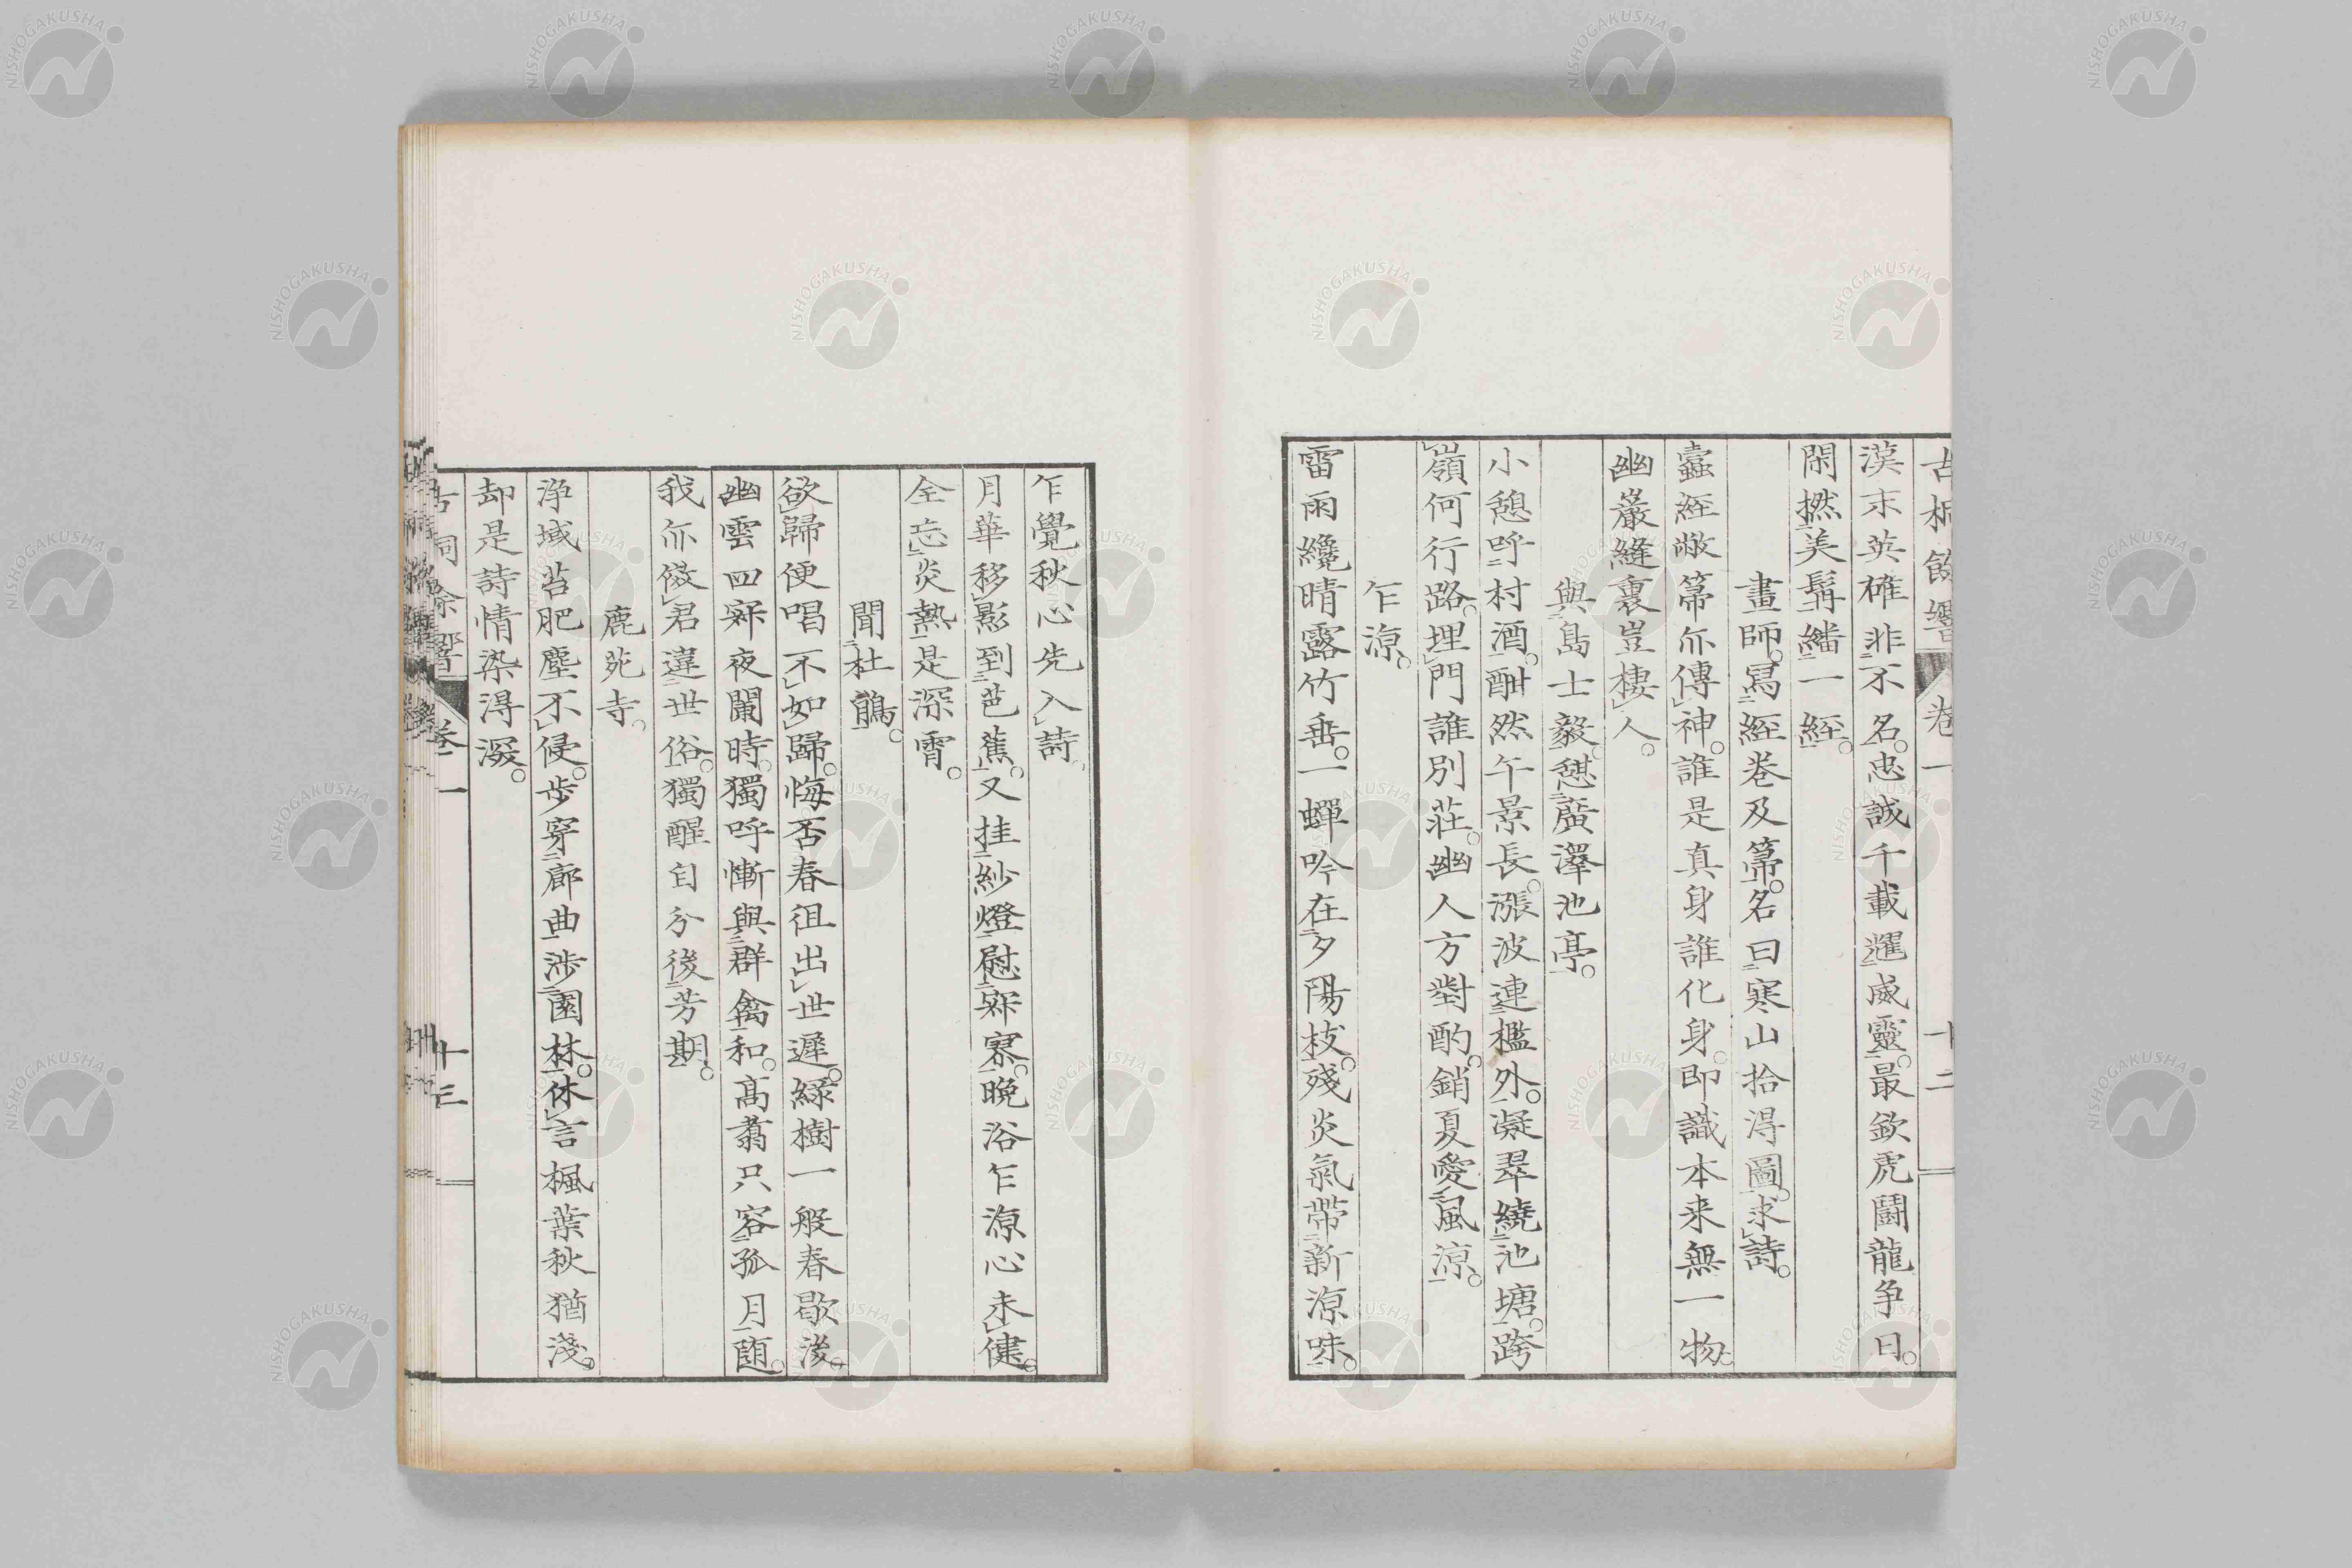 古桐餘響 卷一 十二
漢末英雄非不名。忠誠千載遝威靈。最欽虎鬪龍争日。
閑撚美髯繙一經。
畫師。寫經卷及箒。名曰寒山拾得圖。求詩。
蠹經敝箒尒傳神。誰是真身誰化身。即識本来無一物。
幽巖縫裏豈棲人。
與島士毅憩廣澤池亭。
小憩呼村酒。酣然午景長。漲波連檻外。凝翠繞池塘。跨
嶺何行路。埋門誰別莊。幽人方對酌。銷夏愛風涼。
乍涼。
雷雨纔晴露竹垂。一蟬吟在夕陽枝。殘炎氣帶新涼味。
乍覺秋心先入詩。
月華移影到芭蕉。又挂紗燈慰寂寥。晚浴乍涼心未健。
全忘炎熱是深霄。
聞杜鵑。
欲歸便唱不如歸。悔否春徂出世遲。緑樹一般春歇後。
幽雲四寂夜闌時。獨呼慚與群禽和。高翥只容孤月隨。
我尒倣君違世俗。獨醒自分後芳期。
鹿苑寺。
淨域苔肥塵不侵。步穿廊曲渉園林。休言楓葉秋猶淺。
却是詩情染得深。
古桐餘響 卷一 十三
NISHOGAKUSHA